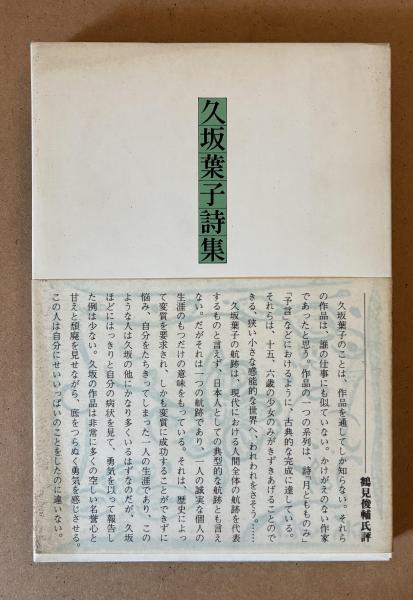 久坂葉子詩集
――鶴見俊輔氏評
久坂葉子のことは、作品を通してしか知らない。それら
の作品は、誰の仕事にも似ていない。かけがえのない作家
であったと思う。作品の一つの系列は、詩「月ともものみ」
「予言」などにおけるように、古典的な完成に達している。
それらは、十五、六歳の少女のみがきずきあげることので
きる、狭い小さな惑能的な世界へ、われわれをさそう。……
久坂葉子の航跡は、現代における人間全体の航跡を代表
するものと言えず、日本人としての典型的な航跡とも言え
ない。だがそれは一つの航跡であり、一人の誠実な個人の
生涯のもつだけの意味をもっている。それは、歴史によっ
て変質を要求され、しかも変質に成功することができずに
悩み、自分をたちきってしまった一人の生涯であり、この
ような人は久坂の他にかなり多くいるはずなのだが、久坂
ほどにはっきりと自分の病状を見て、勇気を以って報告し
た例は少ない。久坂の作品は非常に多くの空しい名誉心と
甘えと頽廃を見せながら、底をつらぬく勇気を感じさせる。
この人は自分にせいいっぱいのことをしたのに違いない。